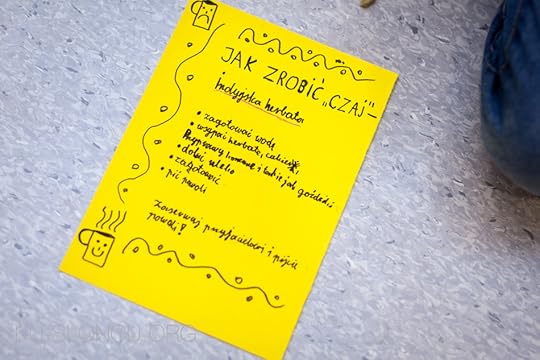 JAK ZROBIĆ „CZAJ" –
indyjska herbata
• zagotować wodę
• wsypać herbatę, cukier
Przyprawy korzenne i takie jak goździki
• dolać mleko
• zagotować
• pić powoli
Zaserwuj przyjaciołom i pijcie
powoli!